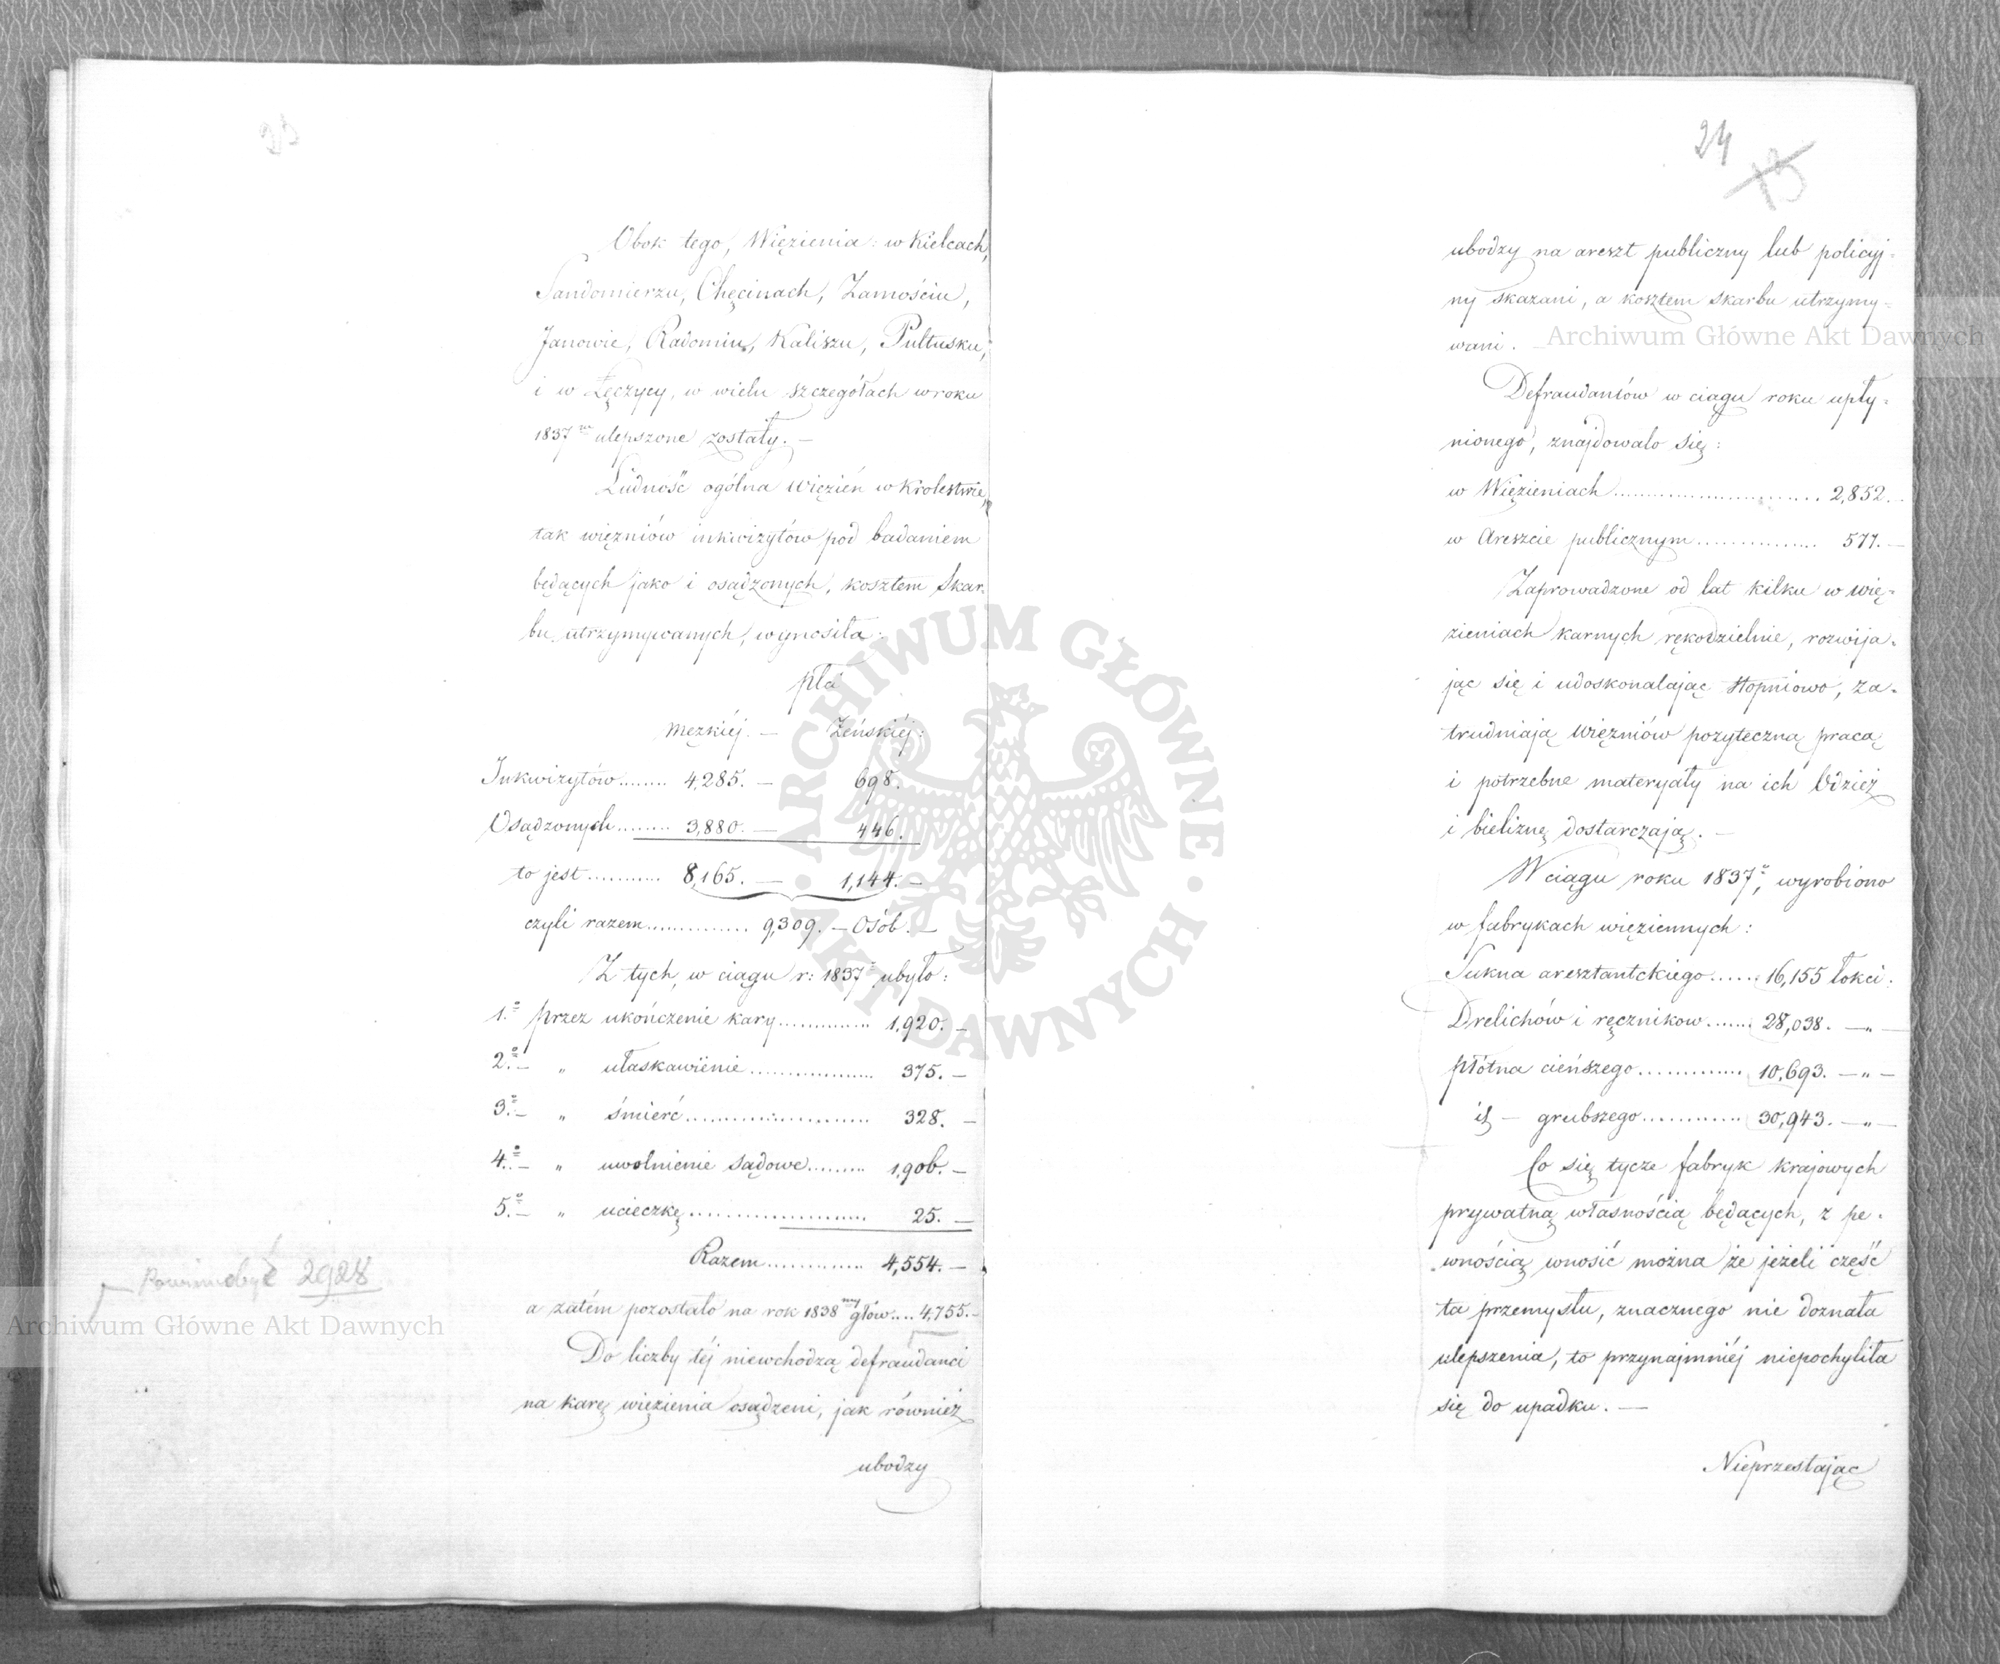 Obok tego, Więzienia: w Kielcach,
Sandomierzu, Chęcinach, Zamościu,
Janowie, Radomiu, Kaliszu, Pułtusku,
i w Łęczycy, w wielu szczegółach w roku
1837 ulepszone zostały. —
Ludność ogólna więzień w Krolestwie,
tak więzniów inkwizytów pod badaniem
będących jako i osądzonych, kosztem Skar-
bu utrzymywanych, wynosiła:
płci
męzkiéj. — Żeńskiéj:
Inkwizytów........ 4,285. — 698.
Osądzonych........ 3,880. — 446.
to jest........... 8,165. — 1,144. —
czyli razem.............. 9,309. — Osób. —
Z tych, w ciągu r: 1837 ubyło:
1.o przez ukończenie kary............. 1,920. —
2.o — „ ułaskawienie.................. 375. —
3.o — „ śmierć.......................... 328. —
4.o — „ uwolnienie sądowe......... 1,906. —
5.o — „ ucieczkę......................... 25. —
Razem.............. 4,554. —
Powinno być 2928
a zatém pozostało na rok 1838 my głów.... 4,755. —
Do liczby téj niewchodzą defraudanci
na karę więzienia osądzeni, jak również
ubodzy
24
13
ubodzy na areszt publiczny lub policyj-
ny skazani, a kosztem skarbu utrzymy-
wani. —
Defraudantów w ciągu roku upły-
nionego, znajdowało się:
w Więzieniach.......................... 2,852. —
w Areszcie publicznym............... 577. —
Zaprowadzone od lat kilku w wię-
zieniach karnych rękodzielnie, rozwija-
jąc się i udoskonalając stopniowo, za-
trudniają więzniów pozyteczną pracą
i potrzebne materyały na ich Odzież
i bieliznę dostarczają. —
W ciągu roku 1837, wyrobiono
w fabrykach więziennych:
Sukna aresztantckiego...... 16,155 łokci.
Drelichów i ręcznikow....... 28,038. — „ —
płótna cieńszego............. 10,693. — „ —
— grubszego............ 30,943. — „ —
Co się tycze fabryk krajowych
prywatną własnością będących, z pe-
wnością wnosić można że jeżeli część
ta przemysłu, znacznego nie doznała
ulepszenia, to przynajmniéj niepochyliła
się do upadku. —
Nieprzestając
Archiwum Główne Akt Dawnych
Archiwum Główne Akt Dawnych
ARCHIWUM GŁÓWNE
AKT DAWNYCH